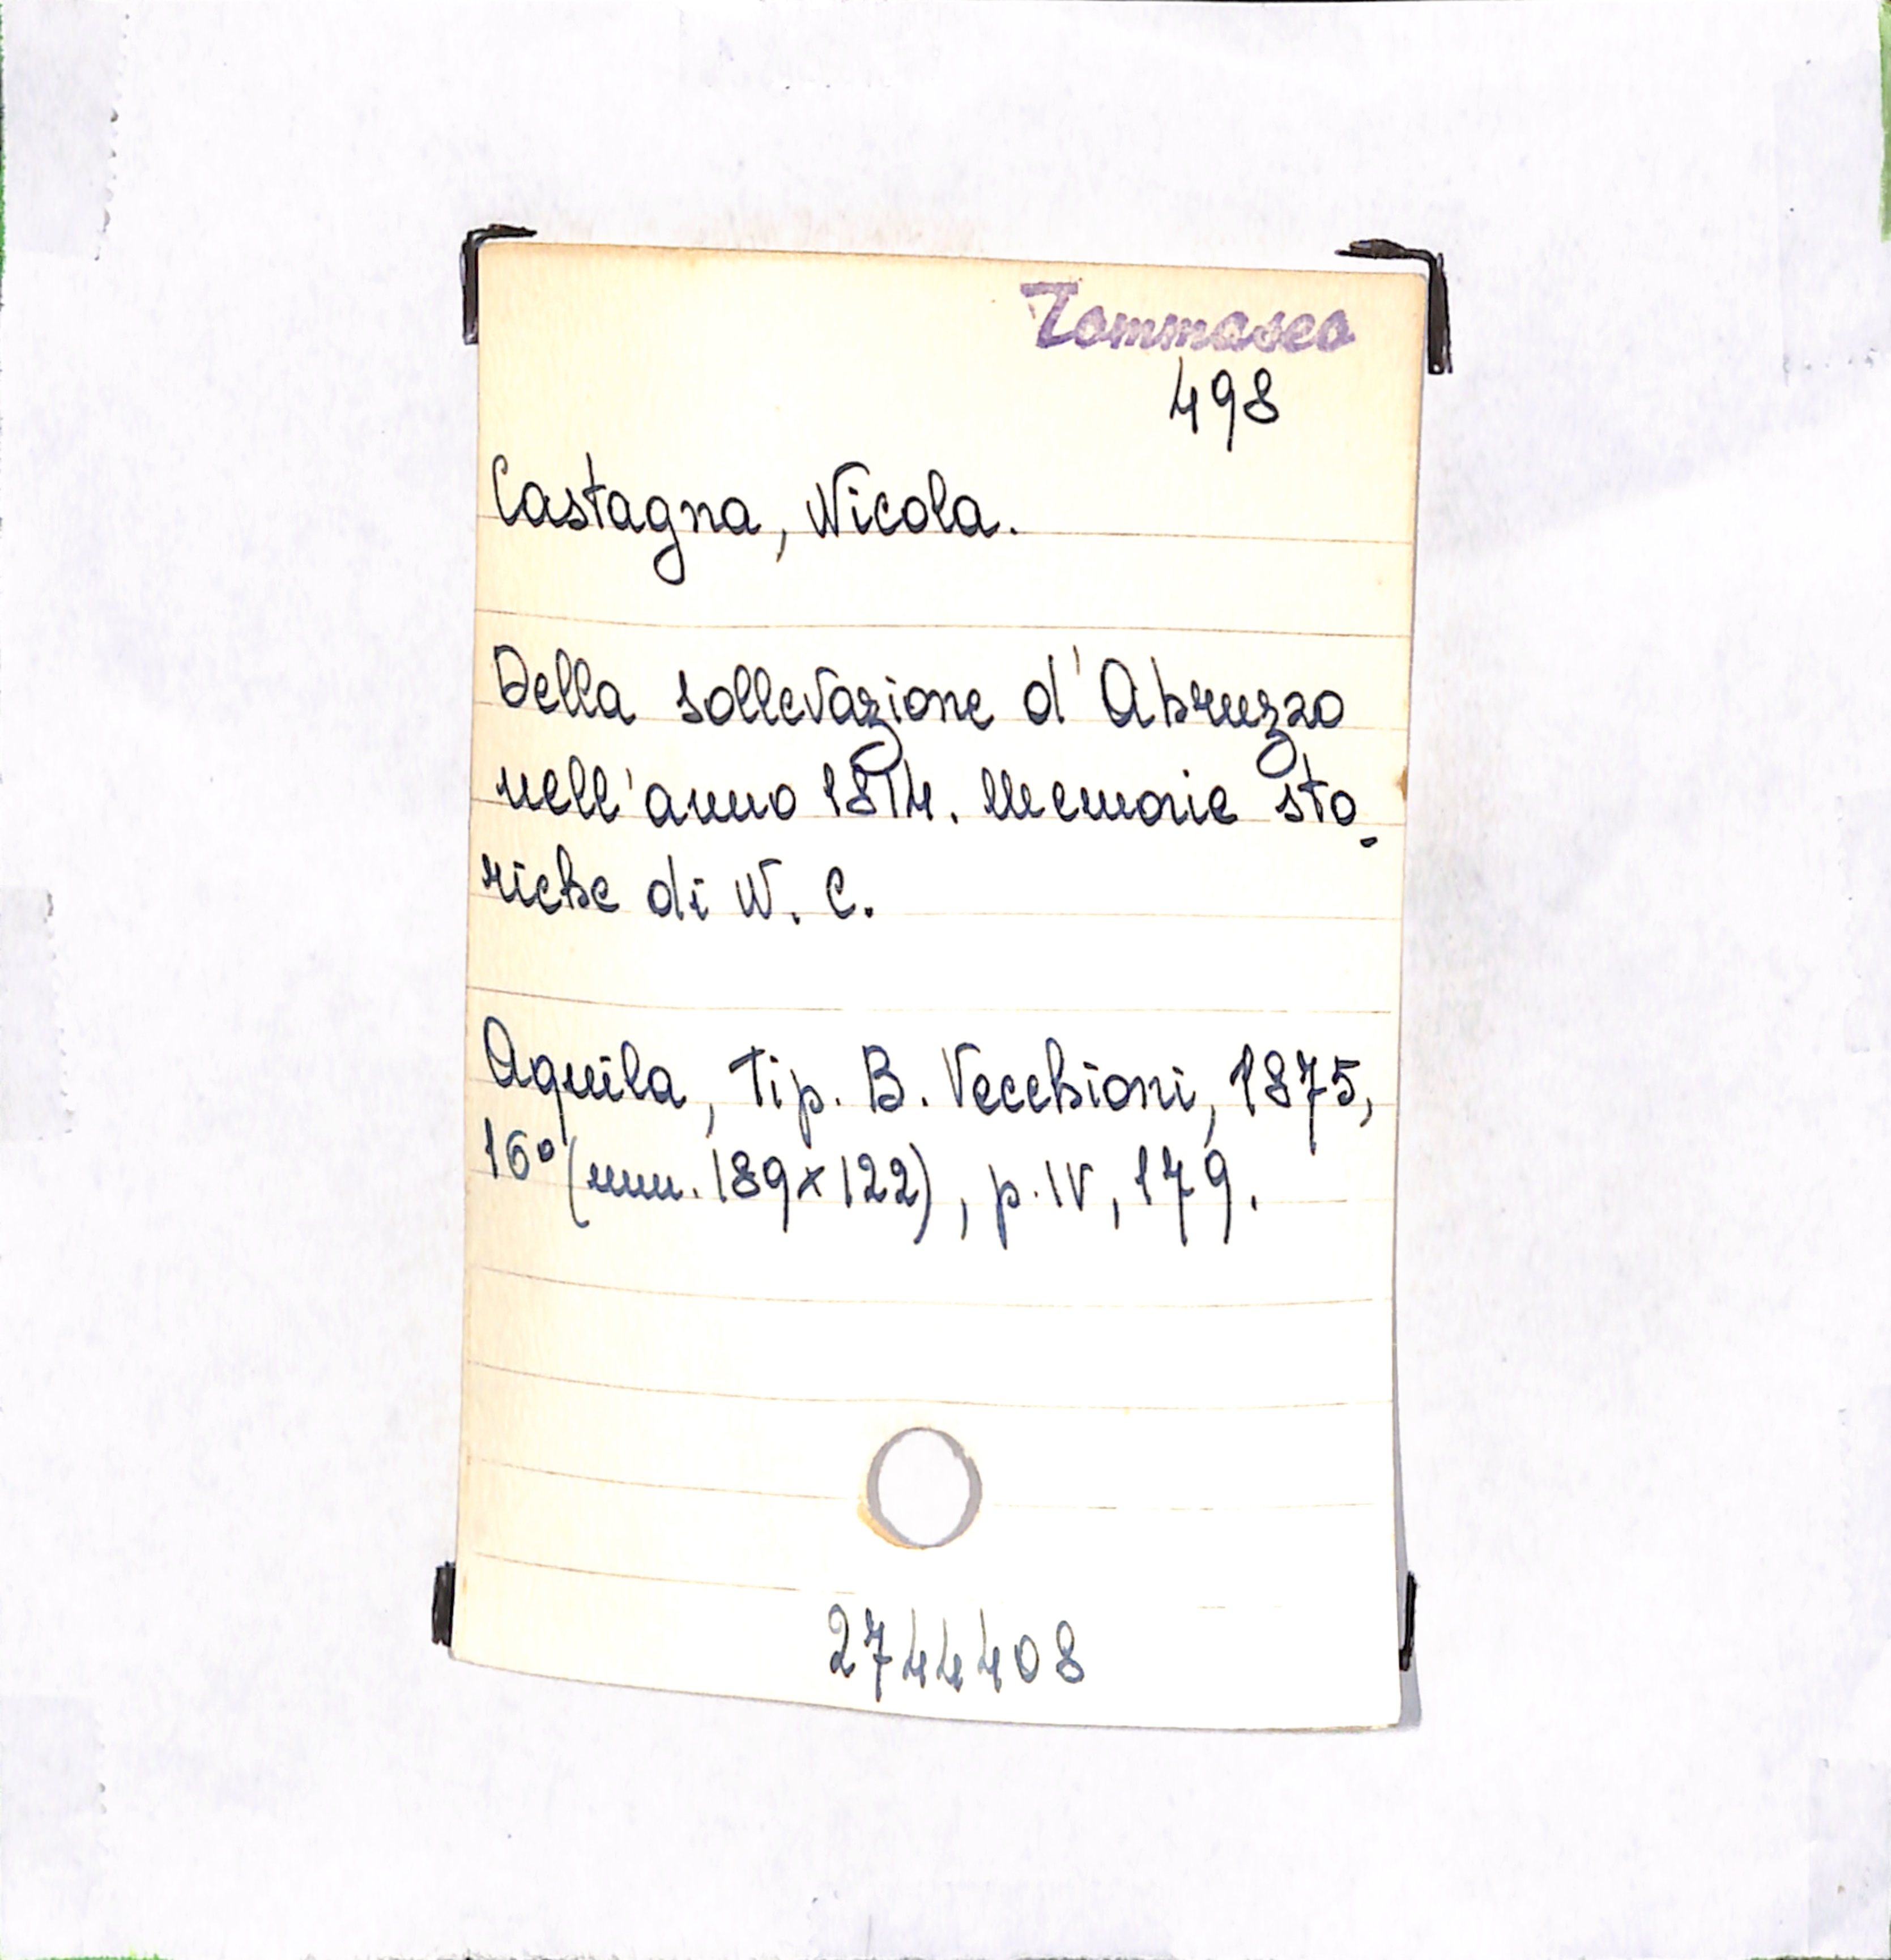 Tommaseo
498
Castagna, Nicola.
Della sollevazione d'Abruzzo
nell'anno 1814. Memorie sto-
riche di N. C.
Aquila, Tip. B. Vecchioni, 1875,
16° (mm. 189x122), p. IV, 179.
2744408